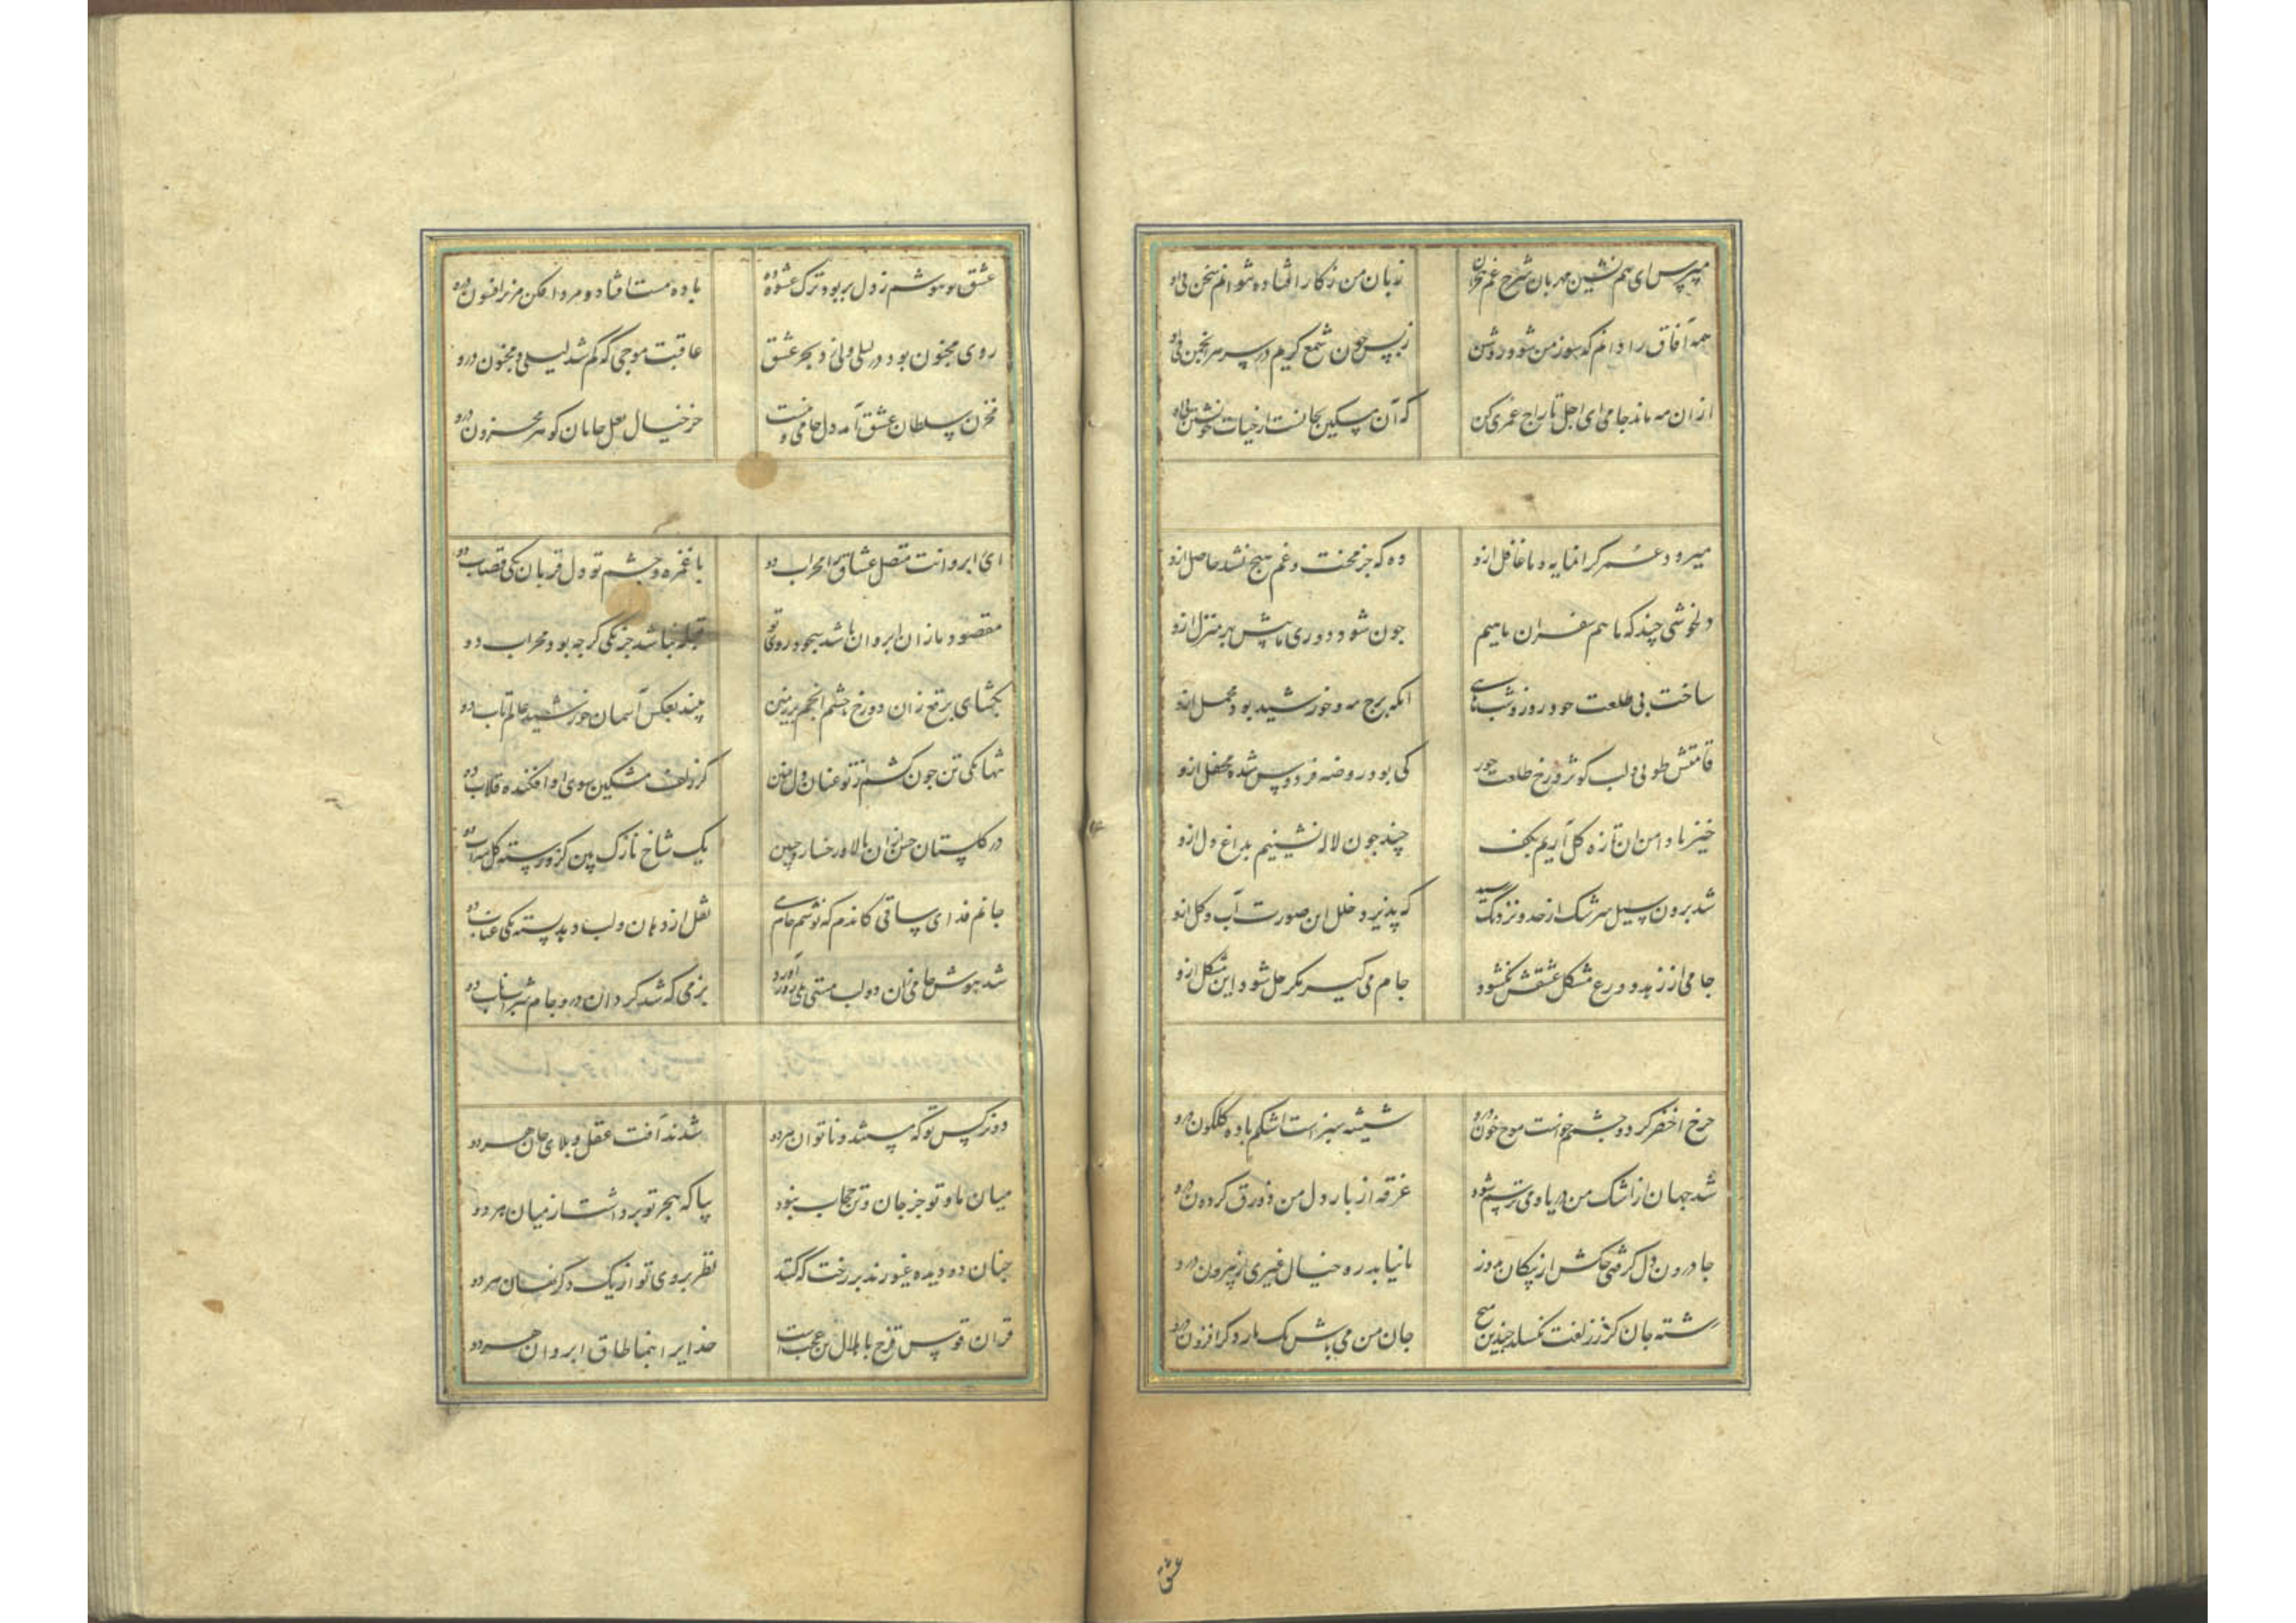 مپرس ای هم نشین مهربان شرح غم هجران
زبان من ز کار افتاده شوانم سخن بی او
همه آفاق را دانم که سوز من شود روشن
ز بس چون شمع گریم در سر هر انجمن بی او
از ان مه ماند جامی ای اجل تاراج عمری کن
که آن مسکین بجانست از حیات خویشتن بی او
میرود عمر کرانمایه و ما غافل ازو
وه که جز محنت و غم هیچ نشد حاصل ازو
دلخوشی چند که ما هم سفران با هیم
چون شود دوری ما پیش بهر منزل ازو
ساخت بی طلعت خود روز و شبم
انکه برج مه و خورشید بود محمل ازو
قامتش طوبی و لب کوثر و رخ طلعت حور
کی بود روضه فردوس شده محفل ازو
خیز تا دامن ان تازه کل آریم بکف
چند چون لاله نشینیم بداغ دل ازو
شد برون سیل سرشک از حد و نزدیک رسید
که پذیرد خلل این صورت آب و کل ازو
جامی از زهد و ورع مشکل عشقش نکشود
جام می کیر مکر حل شود این مشکل ازو
چرخ اخضر کرد و چشمم خواست موج خون درو
شیشه سبز است اشکم باده کلکون درو
شد جهان از اشک من دریا و می ترسم شود
غرقه از بار دل من زورق کردون درو
جا درون دل کرفتی چاکش از پیکان بدوز
تا نیابد ره خیال غیری از بیرون درو
رشته جان کز زلفت نکسلد چندین مپیچ
جان من می باش یک بار و کر افزون درو
عشق
عشق تو هوشم ز دل بربود ترک عشوه ده
باده مست افتاد و مرد افکن مریز افسون درو
روی مجنون بود در لیلی ولی در بحر عشق
عاقبت موجی که کم شد لیلی و مجنون درو
مخزن سلطان عشق آمد دل جامی و نیست
جز خیال لعل جانان کوهر مخزون درو
ای ابروانت متصل عشاق را محراب دو
با غمزه و چشم تو دل قربان یکی قصاب دو
مقصود ما زان ابروان باشد سجود روی تو
قبله نباشد جز یکی کرچه بود محراب دو
بکشای برقع زان دو رخ چشم انجم بر زمین
بیند بعکس آسمان خورشید عالم تاب دو
تنها نکی تن چون کشم از تو عنان دل ببین
کز زلف مشکین سوی او افکنده قلاب دو
در کلستان حسن ازان بالا و رخسار و جبین
یک شاخ نازک بین کزو رسته کل سیراب دو
جانم فدای ساقی کاندم که نوشم جام می
نقل از دهان و لب دهد پسته یکی عناب دو
شد هوش جامی زان دو لب مستی بلی زور آورد
بزمی که شد کردان درو جام شراب ناب دو
دو نرکس تو که مستند و ناتوان هر دو
شدند آفت عقل و بلای جان هر دو
میان ما و تو جز جان و تن حجاب نبود
بیا که هجر تو برداشت از میان هر دو
چنان دو دیده غیورند بر رخت که کنند
نظر بروی تو از یک دکر نهان هر دو
قران قوس قزح با هلال بس عجبست
خدایرا بنما طاق ابروان هر دو